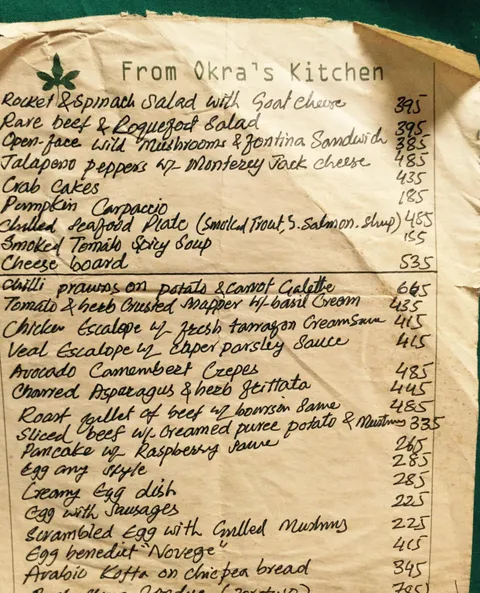 From Okra's Kitchen
Rocket & Spinach Salad with Goat cheese 395
Rare beef & Roquefort Salad 395
Open-face wild Mushrooms & fontina Sandwich 385
Jalapeno peppers w/ Monterey Jack cheese 485
Crab Cakes 435
Pumpkin Carpaccio 185
Chilled Seafood Plate (Smoked Trout, S. Salmon. Shup) 485
Smoked Tomato Spicy Soup 155
Cheese board 535
Chilli prawns on potato & carrot Galette 665
Tomato & herb Crusted Snapper w/ basil Cream 435
Chicken Escalope w/ fresh tarragon Cream Sauce 415
Veal Escalope w/ Caper parsley Sauce 415
Avocado Camembert Crepes 485
Charred Asparagus & herb frittata 445
Roast fillet of beef w/ boursin Sauce 485
Sliced beef w/ Creamed puree potato & Mustard 335
Pancake w/ Raspberry Sauce 265
Egg any style 285
Creamy Egg dish 285
Egg with Sausages 225
Scrambled Egg with Grilled Mushrms 225
Egg benedict "Novege" 415
Arabic Kofta on chicpea bread 345